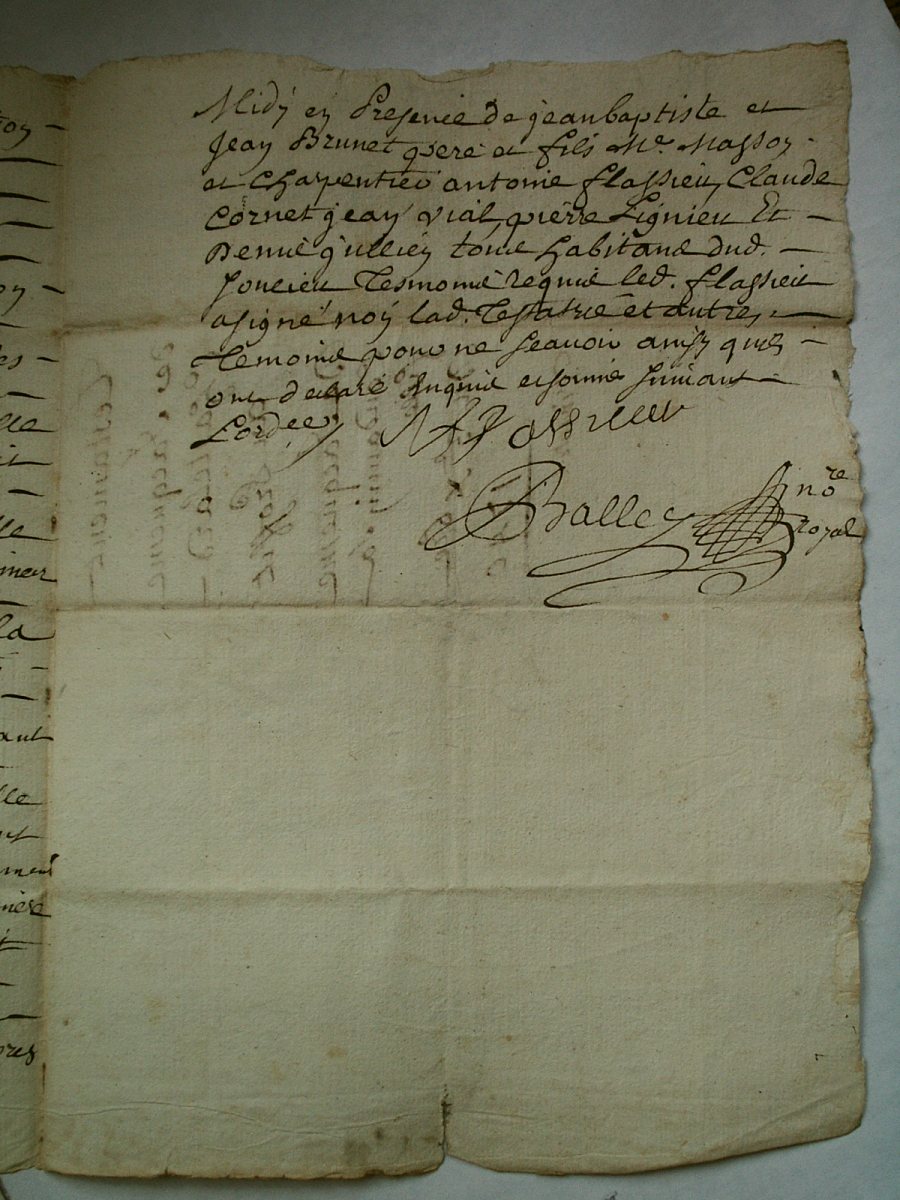 Midy en presence de jean baptiste et
jean Brunet pere et fils Me. Masson
et charpentier antoine flassieu, Claude
Cornet jean vial, pierre Lignieu Et
Denis jullien tous habitans dud.
Soucieu Tesmoins requis led. flassieu
a signé non lad. Testatrice et autres
Temoins pour ne sçavoir ainsy quils
ont declaré Enquis et sommés suivant
Lordce
A flassieu
Balley nore
royal
oy
oy
es
lle
it
lle
la
ant
lle
nt
ment
res